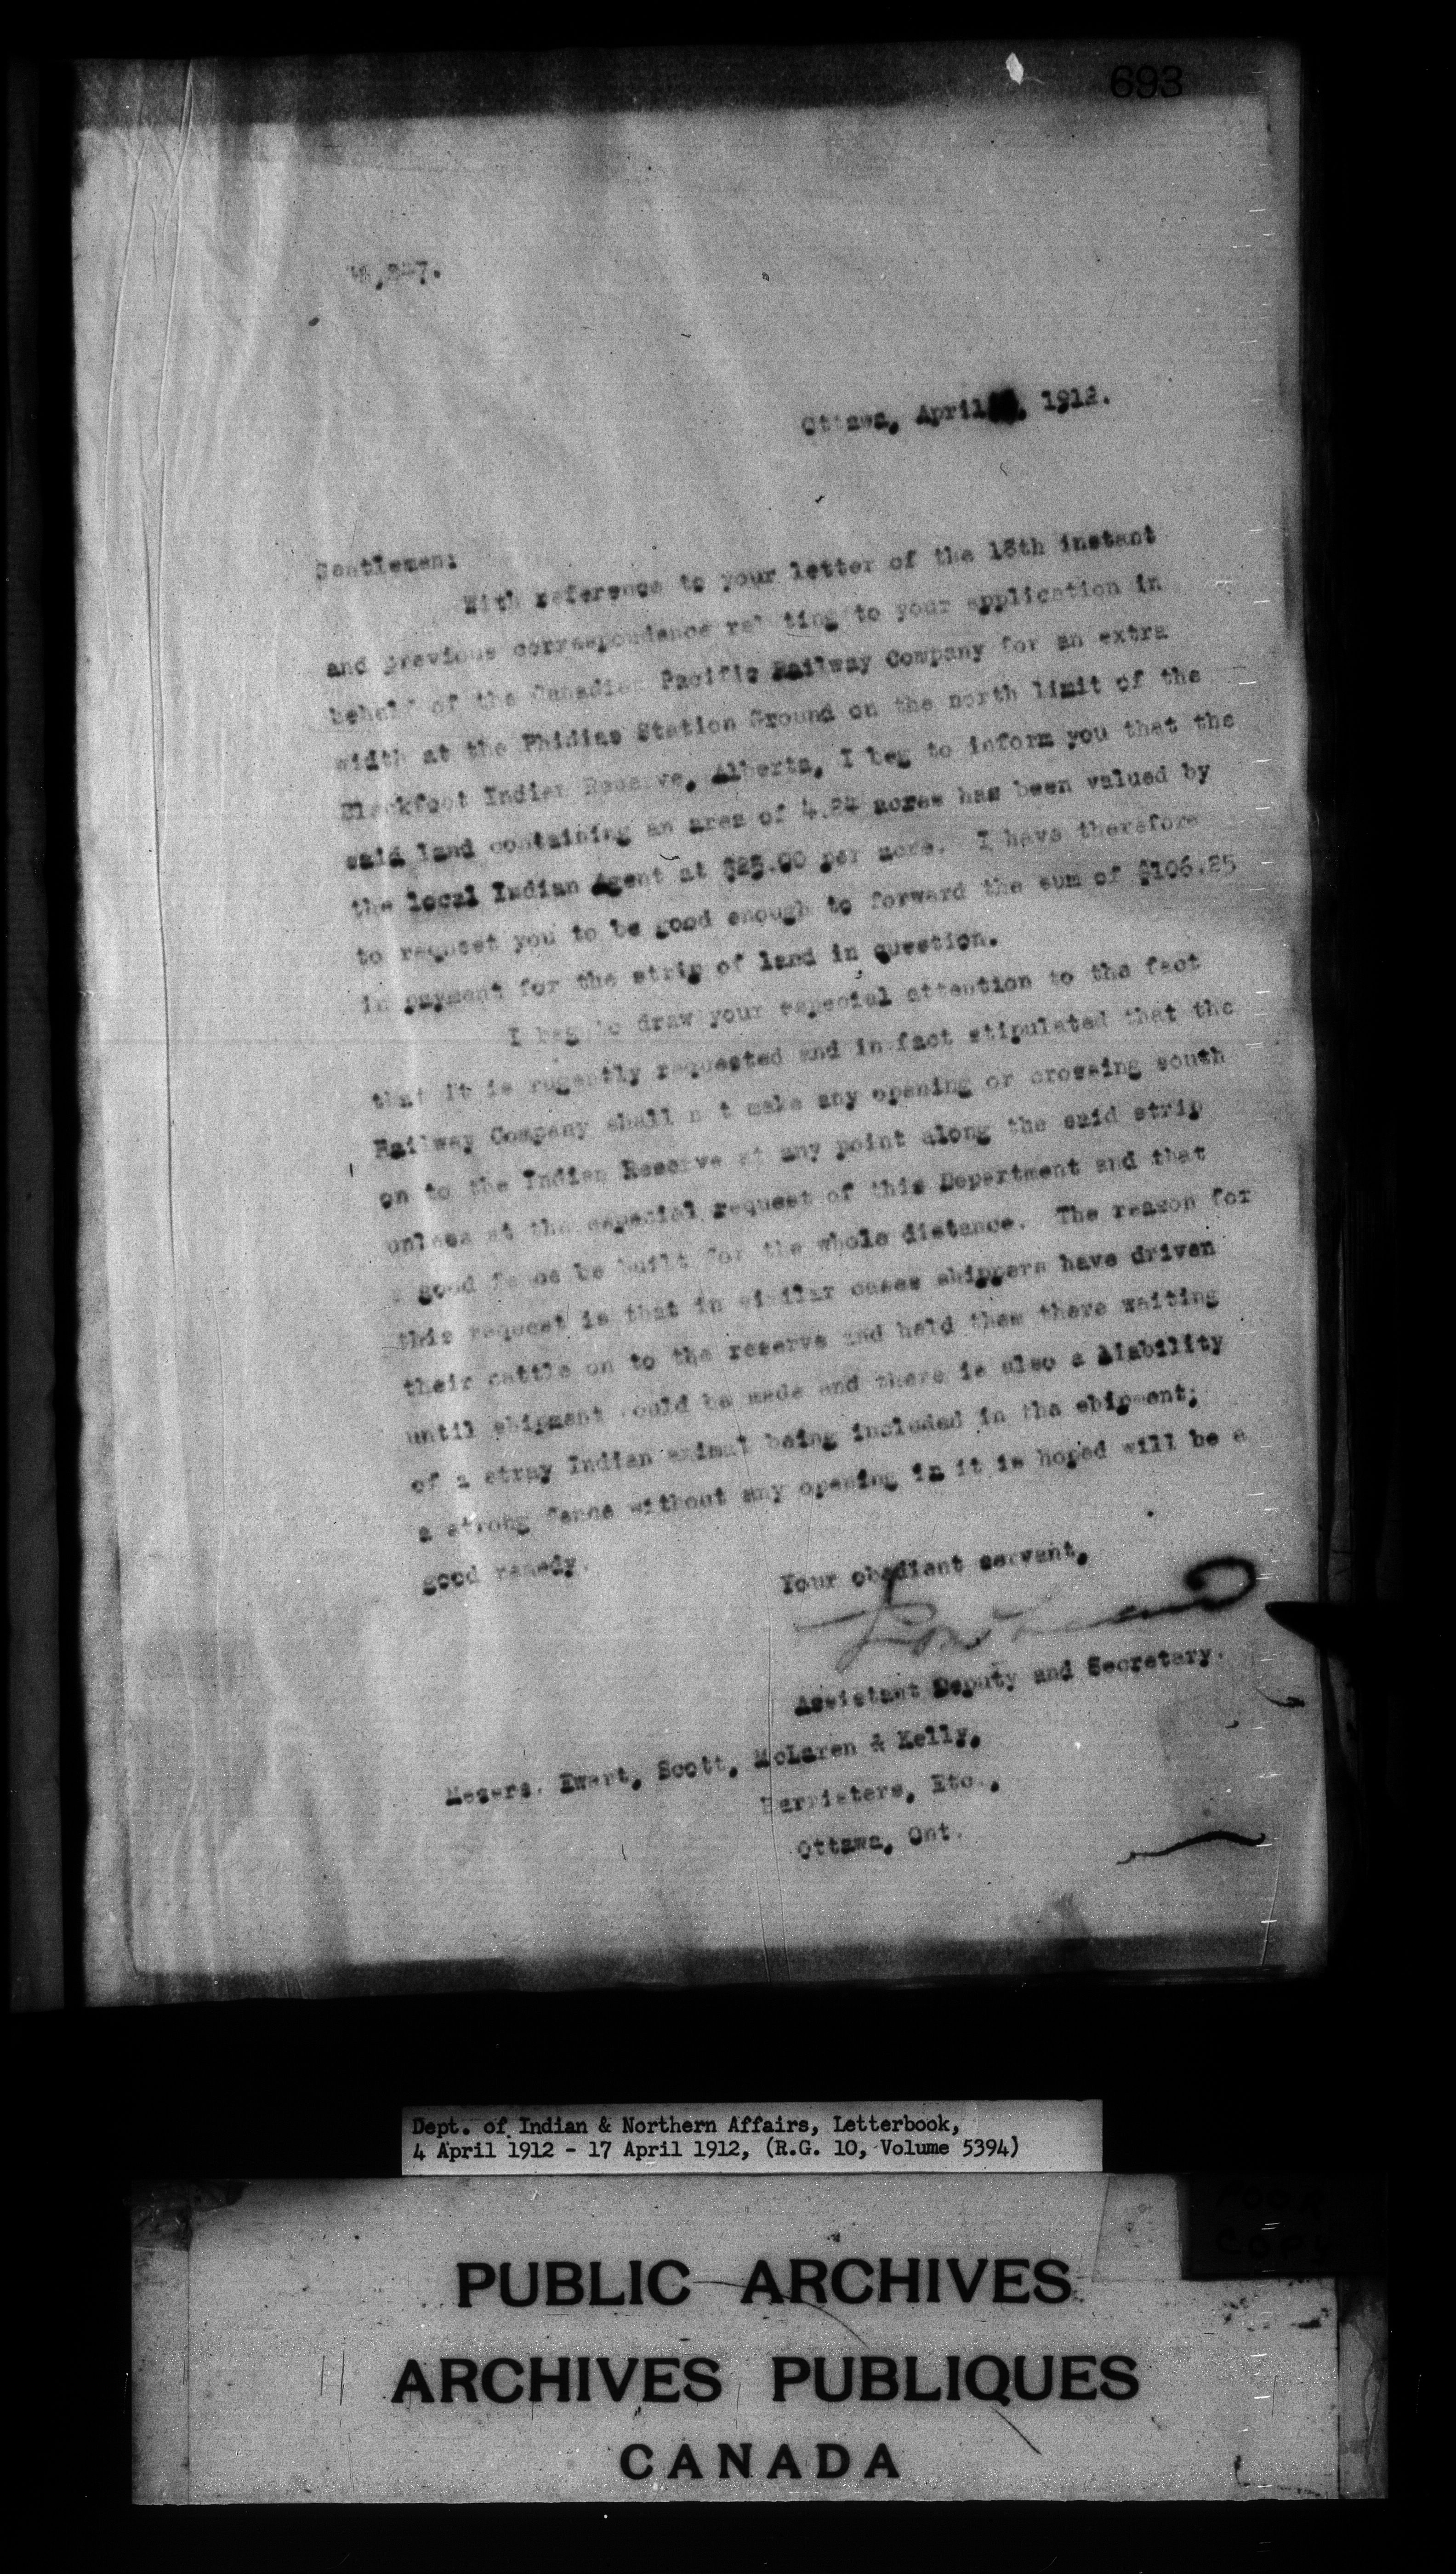 693
Ottawa, April , 1912.
Gentlemen:
With reference to your letter of the 18th instant
and previous correspondence relating to your application in
behalf of the Canadian Pacific Railway Company for an extra
width at the Phidias Station Ground on the north limit of the
Blackfoot Indian Reserve, Alberta, I beg to inform you that the
said land containing an area of 4.24 acres has been valued by
the local Indian Agent at $25.00 per acre. I have therefore
to request you to be good enough to forward the sum of $106.25
in payment for the strip of land in question.
I beg to draw your especial attention to the fact
that it is rugently requested and in fact stipulated that the
Railway Company shall not make any opening or crossing south
on to the Indian Reserve at any point along the said strip
unless at the especial request of this Department and that
a good fence be built for the whole distance. The reason for
this request is that in similar cases shippers have driven
their cattle on to the reserve and held them there waiting
until shipment could be made and there is also a liability
of a stray Indian animal being included in the shipment;
a strong fence without any opening in it is hoped will be a
good remedy.
Your obedient servant,
Assistant Deputy and Secretary.
Messrs. Ewart, Scott, McLaren & Kelly,
Barristers, Etc.,
Ottawa, Ont.
Dept. of Indian & Northern Affairs, Letterbook,
4 April 1912 - 17 April 1912, (R.G. 10, Volume 5394)
POOR
COPY
PUBLIC ARCHIVES
ARCHIVES PUBLIQUES
CANADA